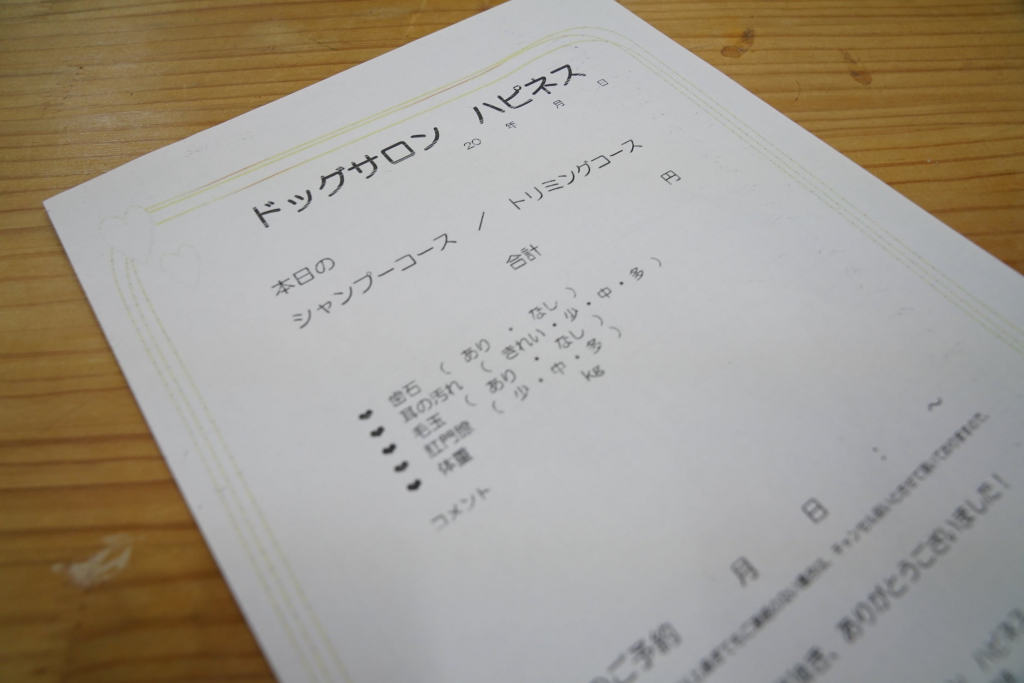 ドッグサロン ハピネス
20 年 月 日
本日の
シャンプーコース / トリミングコース
合計 円
❤ 歯石 ( あり ・ なし )
❤ 耳の汚れ ( きれい・少・中・多 )
❤ 毛玉 ( あり ・ なし )
❤ 肛門腺 ( 少・中・多 )
❤ 体重 kg
コメント
ご予約 月 日 : ~
ありがとうございました!
ハピネス